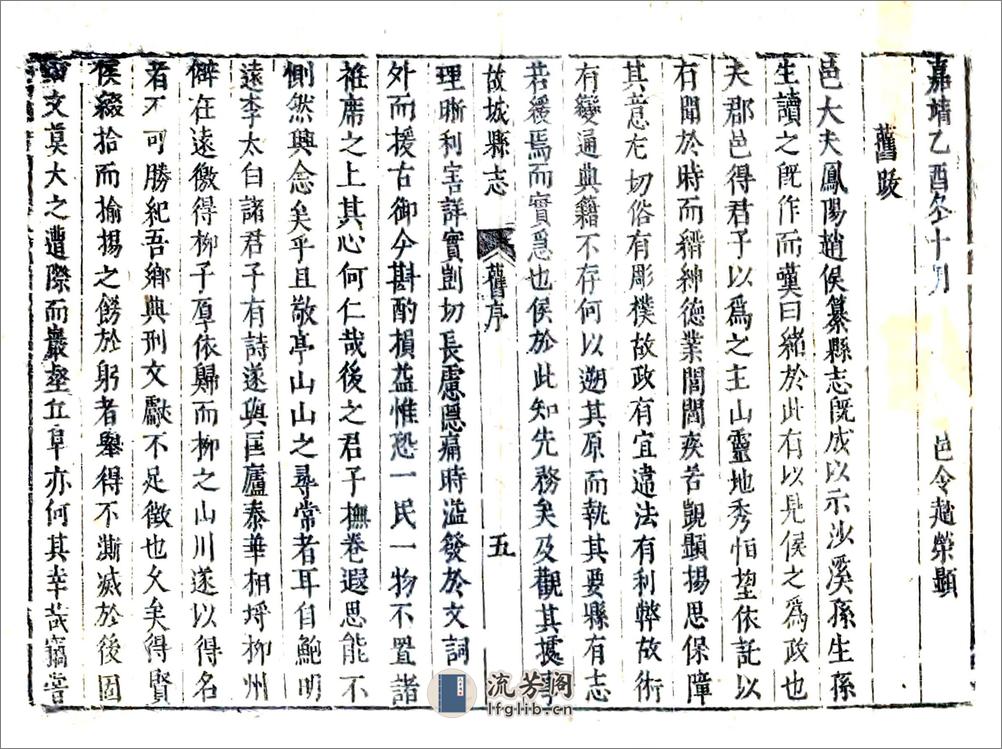 嘉靖乙酉冬十月 邑令趙榮顯
舊跋
邑大夫鳳陽趙侯纂縣志既成以示沙溪孫生孫
生讀之既作而嘆曰緒於此有以見侯之為政也
夫郡邑得君子以爲之主山靈地秀怕望依託以
有聞於時而縉紳德業閭閻疾苦覬顯揚思保障
其意尤切俗有彫樸故政有宜違法有利弊故術
有變通典籍不存何以遡其原而執其要縣有志
若緩焉而實急也侯於此知先務矣及觀其攄
故城縣志 舊序 五
理晰利害詳實剴切長慮隱痛時溢發於文詞
外而援古御今斟酌損益惟恐一民一物不置諸
袵席之上其心何仁哉後之君子撫卷遐思能不
惻然興念矣乎且敬亭山山之尋常者耳自鮑明
遠李太白諸君子有詩遂與匡廬泰華相埒柳州
僻在遠徼得柳子厚依歸而柳之山川遂以得名
者不可勝紀吾鄉典刑文獻不足徵也久矣得賢
侯綴拾而揄揚之餝於躬者舉得不澌滅於後固
文莫大之遭際而巖壑丘阜亦何其幸哉竊嘗
流芳閣
lfglib.cn